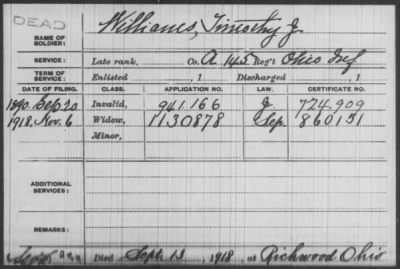 DEAD
Williams, Timothy J
NAME OF SOLDIER:
SERVICE: Late rank, Co. A 145 Reg't Ohio Inf
TERM OF SERVICE: Enlisted , 1 Discharged , 1
DATE OF FILING. CLASS. APPLICATION NO. LAW. CERTIFICATE NO.
1890. Sep. 20 Invalid, 941.166 J. 724.909
1918. Nov. 6 Widow, 1130878 Sep. 860151
Minor,
ADDITIONAL SERVICES:
REMARKS:
Died Sept. 13, 1918, at Richwood Ohio